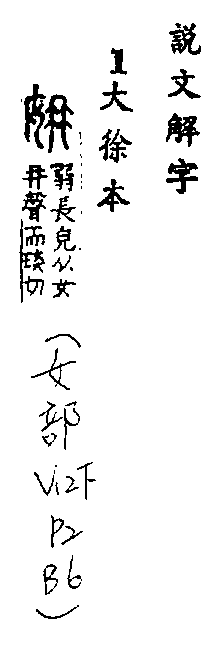 說文解字
1大徐本
姌
弱長皃从女
冄聲而琰切
(女部V12下P2B6)